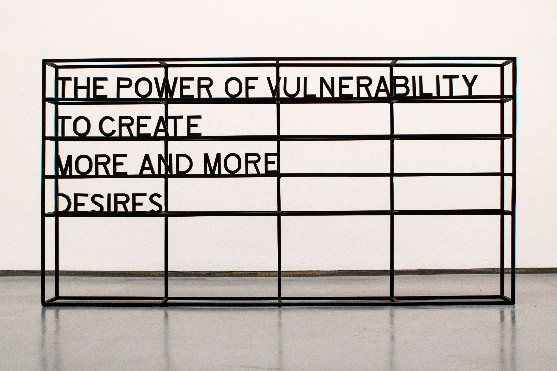 THE POWER OF VULNERABILITY
TO CREATE
MORE AND MORE
DESIRES